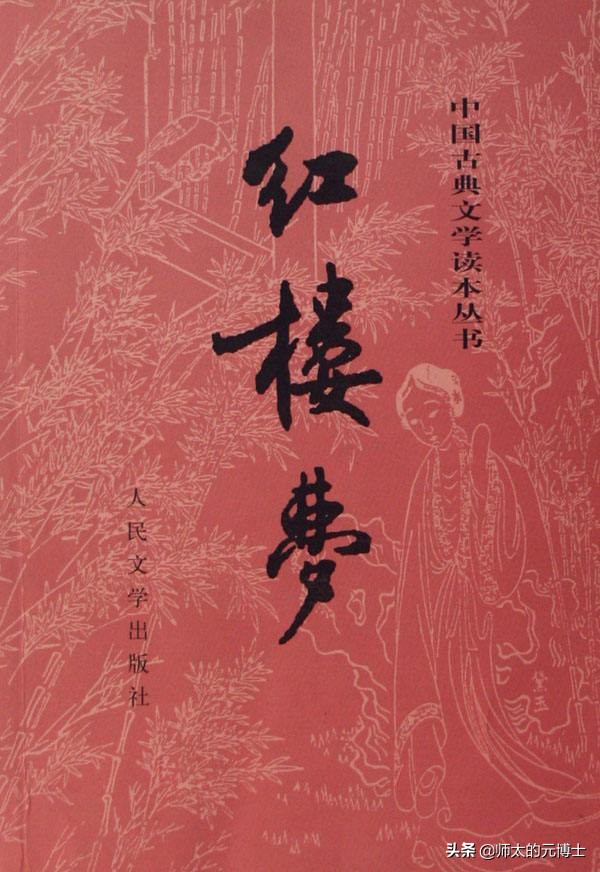 中国古典文学读本丛书
红楼梦
人民文学出版社
黛玉
头条 @师太的元博士